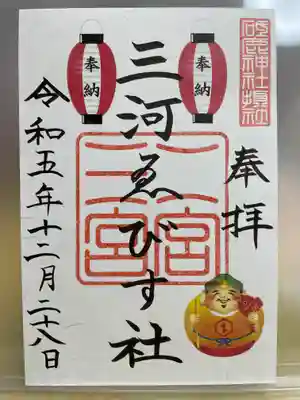 砥鹿神社境内社
奉拝
奉納
奉納
三河ゑびす社
三河
一宮
令和五年十二月二十八日